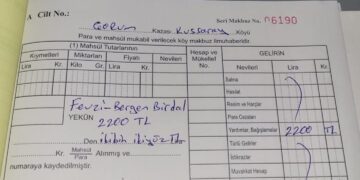 A Cilt No.: Seri Makbuz No. 06190
Çorum Kazası Kussaray Köyü
Para ve mahsül mukabil verilecek köy makbuz ilmuhaberidir.
(1) Mahsul Tutarlarının
Hesap ve Mükellef No.
GELİRİN
Kıymetleri Miktarları Fiyatı Nevileri
Nevileri Lira Kr.
Lira Kr. Kilo Gr. Lira Kr.
Salma
Hasılat
Resim ve Harçlar
Para Cezaları
Fevzi-Bergen Birdal
Yardımlar, Bağışlamalar 2200 TL
YEKÜN 2200 TL
Türlü Gelirler
Den
İstikrazlar
Kr. Mahsül Para Alınmış ve
Muvakkat Hesap
numaraya kaydedilmiştir.